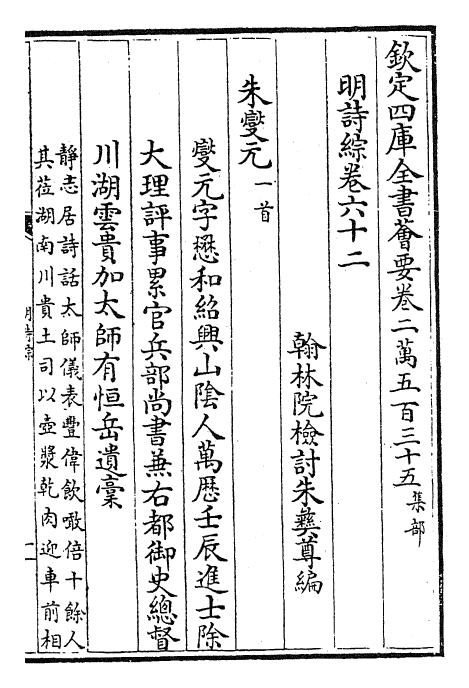 欽定四庫全書薈要卷二萬五百三十五集部
明詩綜卷六十二
翰林院檢討朱彝尊編
朱燮元一首
燮元字懋和紹興山陰人萬厯壬辰進士除
大理評事累官兵部尚書兼右都御史總督
川湖雲貴加太師有恒岳遺稾
靜志居詩話太師儀表豐偉飲噉倍十餘人
其莅湖南川貴土司以壺漿乾肉迎車前相